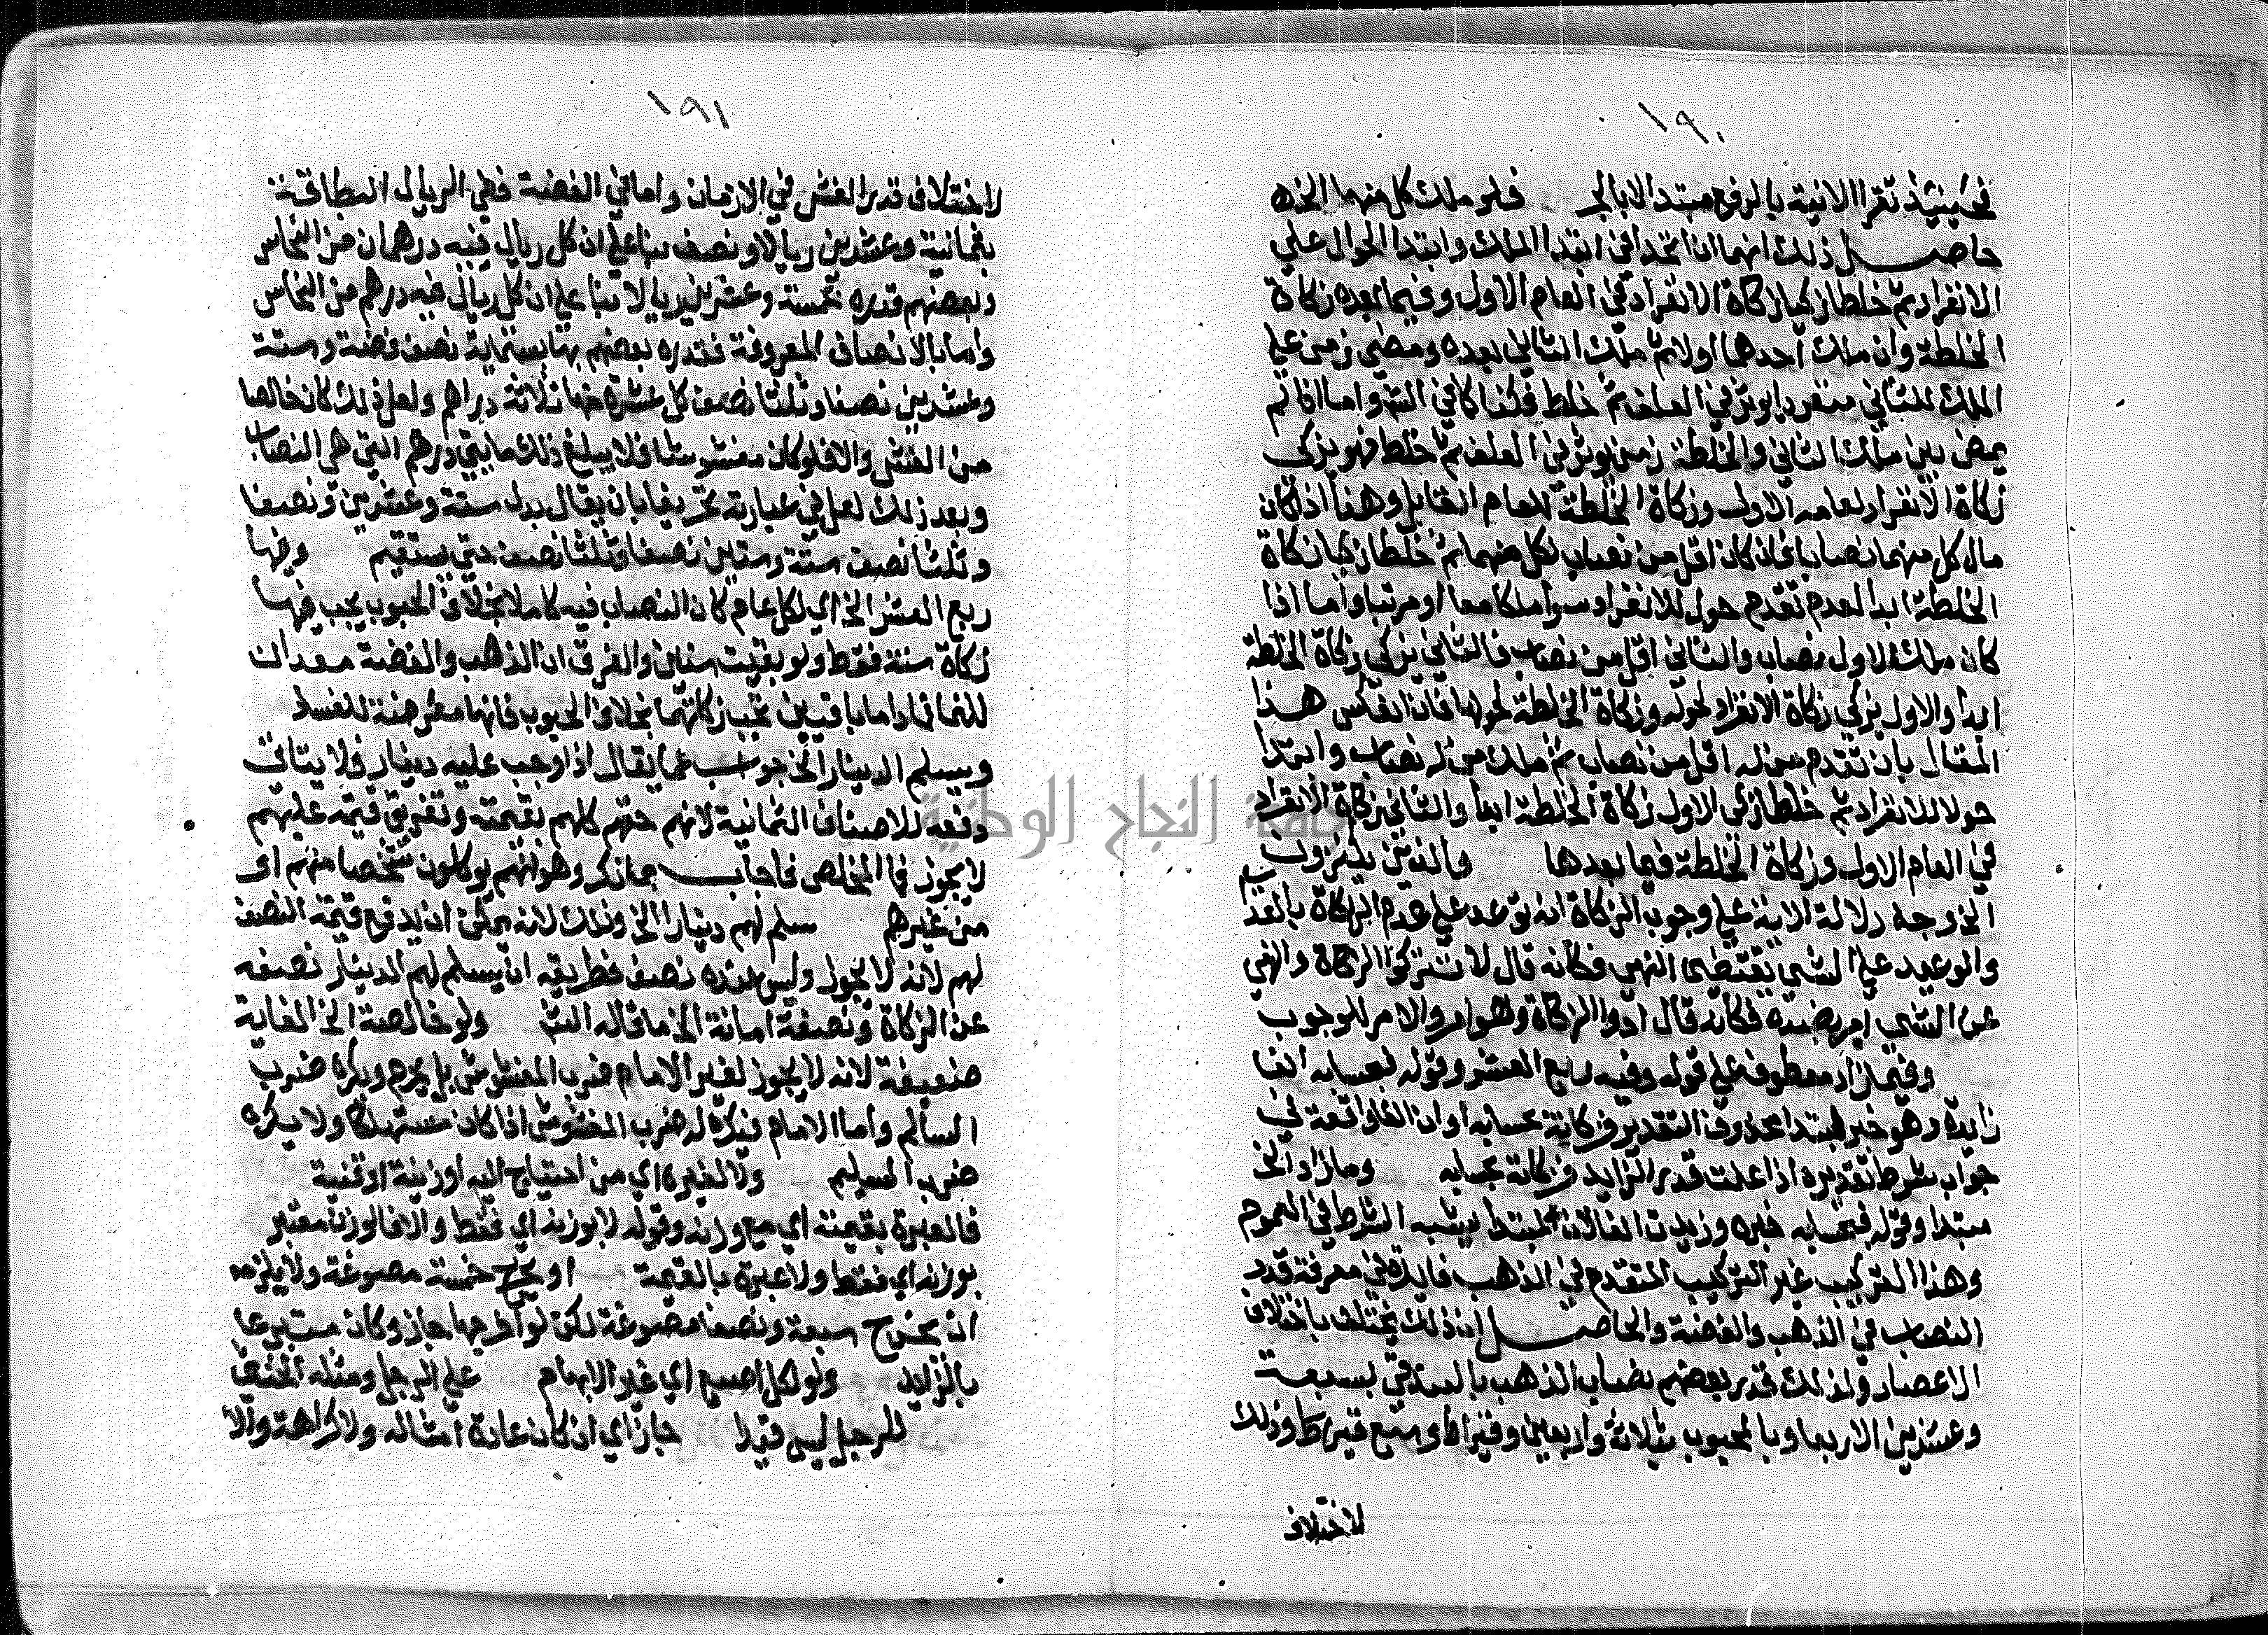 ١٩٠
فحينئذ تقرا الانية بالرفع مبتدا لا بالجر فلو ملك كل منهما الخ هذه
حاصل ذلك انهما اذا اتحدا في ابتدا الملك وابتدا الحول علي
الانفراد ثم خلطا زكيا زكاة الانفراد في العام الاول وفيما بعده زكاة
الخلطة وان ملك احدهما اولا ثم ملك الثاني بعده ومضي زمن علي
الملك للثاني منفردا يوثر في العلف ثم خلط فكذا كما في الش واما اذا لم
يمض بين ملك الثاني والخلطة زمن يوثر في العلف ثم خلط فهو يزكي
زكاة الانفراد لعامه الاول وزكاة الخلطة للعام القابل وهذا اذا كان
مال كل منهما نصابا فان كان اقل من نصاب لكل منهما ثم خلطا زكيا زكاة
الخلطة ابدا لعدم تقدم حول للانفراد سوا ملكا معا او مرتبا واما اذا
كان ملك الاول نصاب والثاني اقل من نصاب فالثاني يزكي زكاة الخلطة
ابدا والاول يزكي زكاة الانفراد لحوله وزكاة الخلطة لحولها فان انعكس هذا
المثال بان تقدم من له اقل من نصاب ثم ملك من له نصاب وابتدا
حولا للانفراد ثم خلطا زكي الاول زكاة الخلطة ابدا والثاني زكاة الانفراد
في العام الاول وزكاة الخلطة فيما بعدها والذين يكنزون
الخ وجه دلالة الاية علي وجوب الزكاة انه توعد علي عدم الزكاة بالعذاب
والوعيد علي الشي يقتضي النهي فكانه قال لا تتركوا الزكاة والنهي
عن الشي امر بضده فكانه قال ادوا الزكاة وهو امر والامر للوجوب
وفيما زاد معطوف علي قوله وفيه ربع العشر وقوله فبحسابه الفا
زايدة وهو خبر لمبتدا محذوف التقدير فزكاته بحسابه او ان الفا واقعة في
جواب شرط تقديره اذا علمت قدر الزايد فزكاته بحسابه وما زاد الخ
مبتدا وقوله فبحسابه خبره وزيدت الفا لان المبتدا يشبه الشرط في العموم
وهذا التركيب غير التركيب المتقدم في الذهب فايدة في معرفة قدر
النصاب في الذهب والفضة والحاصل ان ذلك يختلف باختلاف
الاعصار ولذلك قدر بعضهم نصاب الذهب بالبندقي بسبعة
وعشرين الا ربعا وبالمحبوب بثلاثة واربعين وقيراط وسبع قيراط وذلك
لاختلاف
١٩١
لاختلاف قدر الغش في الازمان واما في الفضة ففي الريال البطاقة
بثمانية وعشرين ريالا ونصف بنا علي ان كل ريال فيه درهمان من النحاس
وبعضهم قدره بخمسة وعشرين ريالا بنا علي ان كل ريال فيه درهم من النحاس
واما بالانصاف المعروفة فقدره بعضهم بها بستماية نصف فضة وستة
وعشرين نصفا وثلثا نصف كل عشرة منها ثلاثة دراهم ولعل ذلك كان خالصا
من الغش والا فلو كان مغشوشا فلا يبلغ ذلك مايتي درهم التي هي النصاب
وبعد ذلك لعل في عبارته تحريفا بان يقال بدل ستة وعشرين ونصفا
وثلثا نصف ستة وستين نصفا وثلثا نصف حتي يستقيم وفيها
ربع العشر الخ اي لكل عام كان النصاب فيه كاملا بخلاف الحبوب يجب فيها
زكاة سنة فقط ولو بقيت سنين والفرق ان الذهب والفضة معدان
للنما فما داما باقيين تجب زكاتهما بخلاف الحبوب فانها معرضة للفساد
ويسلم الدينار الخ جواب عما يقال اذا وجب عليه دينار ولا يتاتي
دفعه للاصناف الثمانية لانهم حقهم كلهم بقيمته وتفريق قيمة عليهم
لا يجوز فما المخلص فاجاب بما ذكر وهو انهم يوكلون شخصا منهم اي
من غيرهم سلم لهم دينارا الخ وذلك لانه يمكن ان يدفع قيمة النصف
لهم لانه لا يجوز وليس عنده نصف فطريقه ان يسلم لهم الدينار نصفه
عن الزكاة ونصفه امانة الخ ما قاله الش ولو خالصة الخ الغاية
ضعيفة لانه لا يجوز لغير الامام ضرب المغشوش بل يحرم ويكره ضرب
السالم واما الامام فيكره له ضرب المغشوش اذا كان مستهلكا ولا يكره
ضرب السليم ولا لغيره اي من احتياج اليه او زينة او قنية
فالعبرة بقيمته اي مع وزنه وقوله لا بوزنه اي فقط والا فالوزن معتبر
بوزنه اي فقط ولا عبرة بالقيمة او يخرج خمسة مصوغة ولا يلزمه
ان يخرج سبعة ونصفا مصوغة لكن لو اخرجها جاز وكان متبرعا
بالزايد ولو لكل اصبع اي غير الابهام علي الرجل ومثله الخنثي
للرجل لبس قيدا جاز اي ان كان عادة امثاله ولا كراهة والا
جامعة النجاح الوطنية